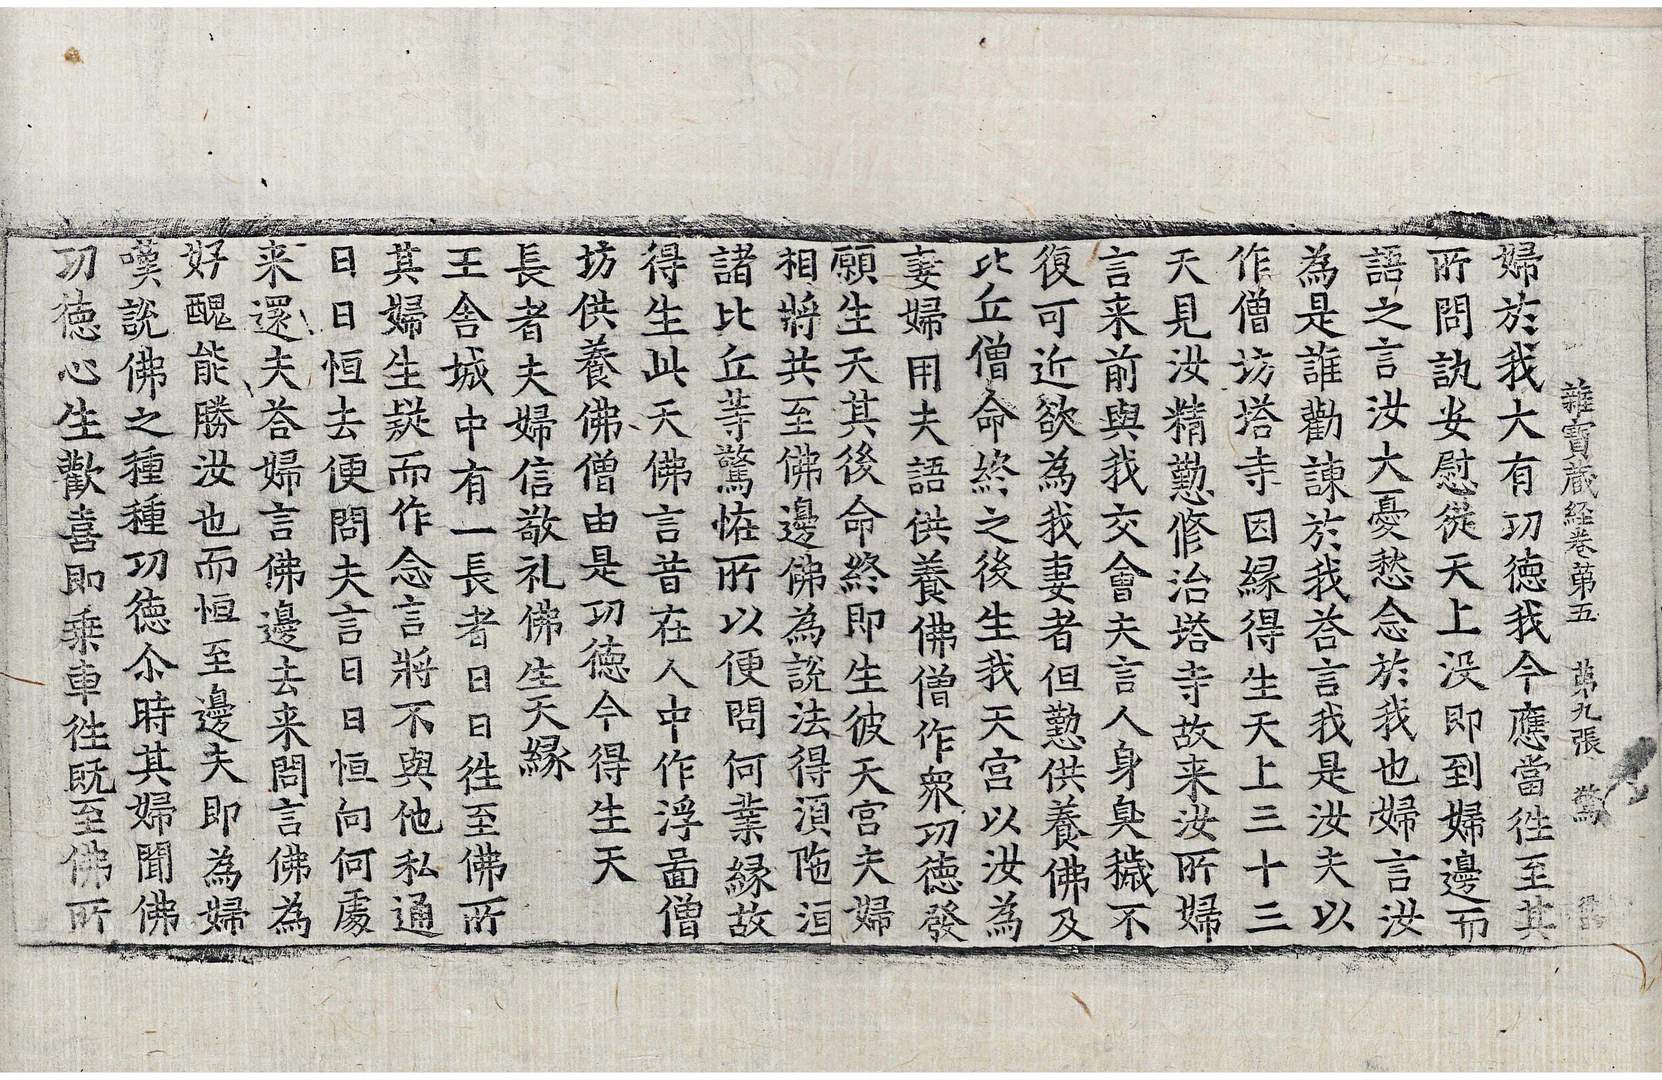 雜寶蔵経卷苐五 苐九張 驚
婦於我大有功徳我今應當徃至其
所問訊安慰從天上没即到婦邊而
語之言汝大憂愁念於我也婦言汝
為是誰勸諫於我荅言我是汝夫以
作僧坊塔寺因縁得生天上三十三
天見汝精懃修治塔寺故来汝所婦
言来前與我交會夫言人身臭穢不
復可近欲為我妻者但懃供養佛及
比丘僧命終之後生我天宫以汝為
妻婦用夫語供養佛僧作衆功徳發
願生天其後命終即生彼天宫夫婦
相將共至佛邊佛為說法得湏陁洹
諸比丘等驚恠所以便問何業縁故
得生此天佛言昔在人中作浮啚僧
坊供養佛僧由是功徳今得生天
長者夫婦信敬礼佛生天縁
王舎城中有一長者日日徃至佛所
其婦生疑而作念言將不與他私通
日日恒去便問夫言日日恒向何處
来還夫荅婦言佛邊去来問言佛為
好醜能勝汝也而恒至邊夫即為婦
嘆說佛之種種功徳尒時其婦聞佛
功徳心生歡喜即乗車徃既至佛所